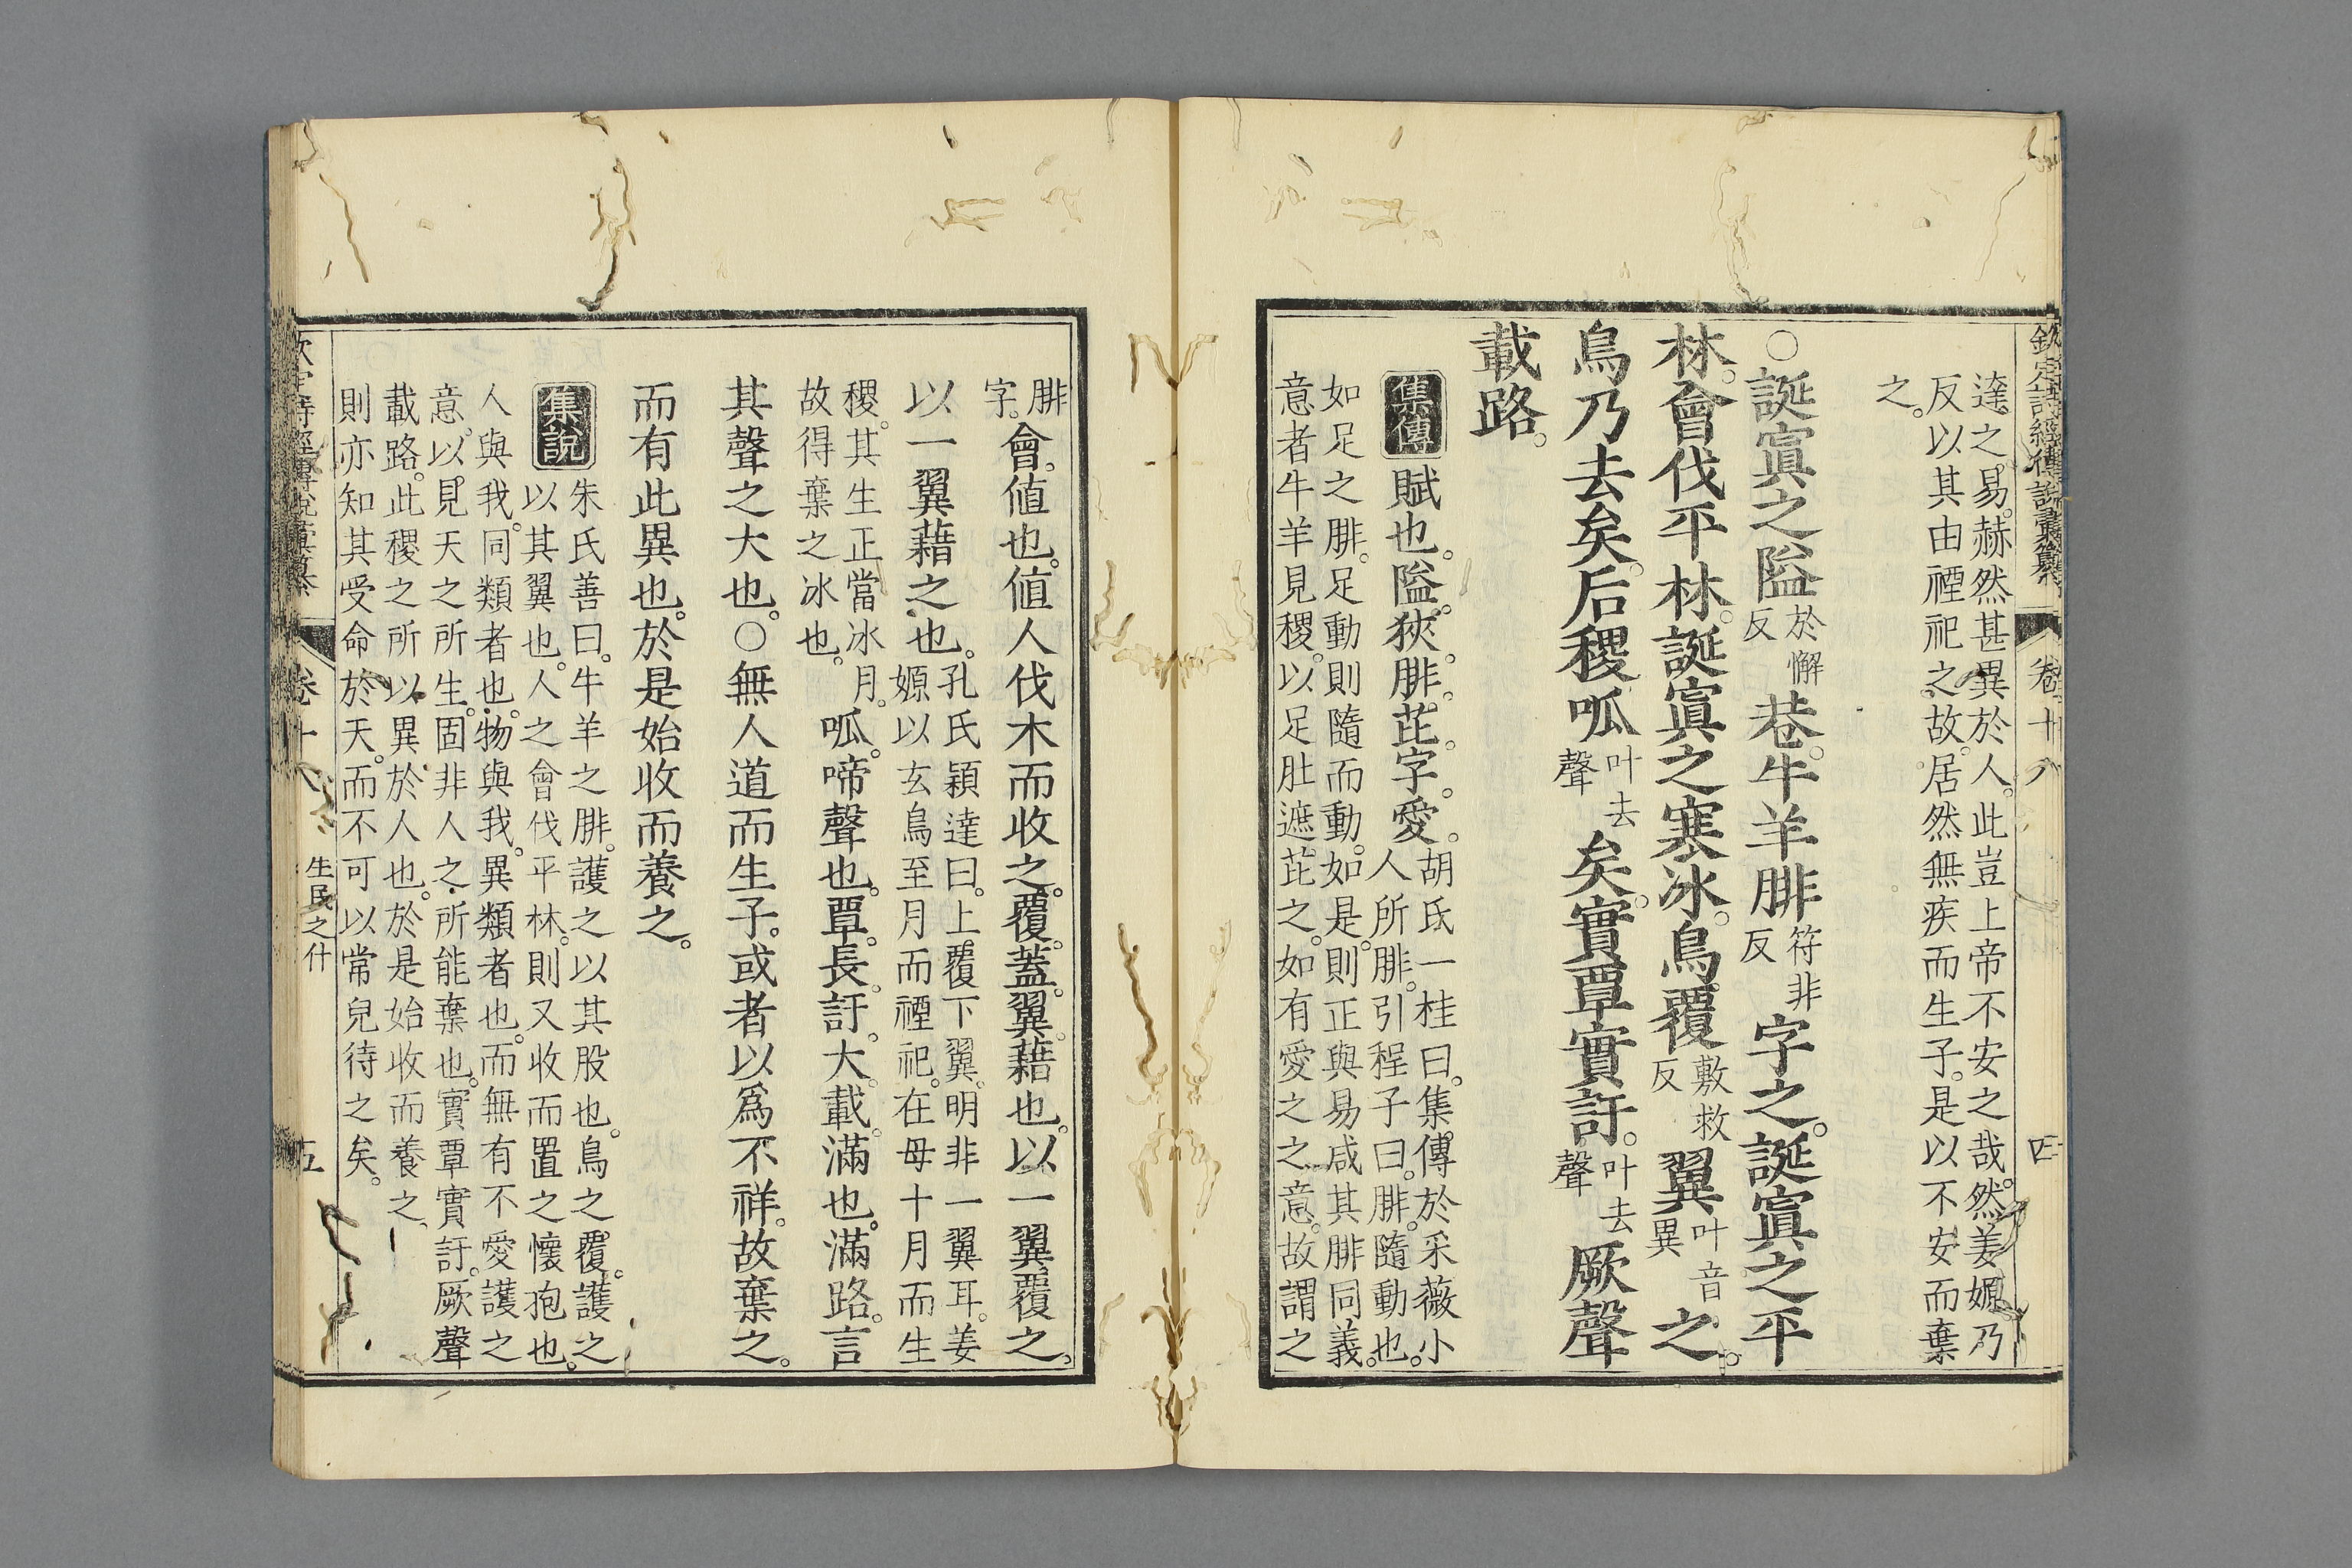 欽定詩經傳說彙纂 卷十八 四
達之易。赫然甚異於人。此豈上帝不安之哉。然姜嫄乃
反以其由禋祀之故。居然無疾而生子。是以不安而棄
之。
○誕寘之隘於懈反巷。牛羊腓符非反字之。誕寘之平
林。會伐平林。誕寘之寒冰。鳥覆敷救反翼叶音異之。
鳥乃去矣。后稷呱叶去聲矣。實覃實訏。叶去聲厥聲
載路。
集傳 賦也。隘。狹。腓。芘。字。愛。
胡氏一桂曰。集傳於采薇小
人所腓。引程子曰。腓。隨動也。
如足之腓。足動則隨而動。如是。則正與易咸其腓同義。
意者牛羊見稷。以足肚遮芘之。如有愛之之意。故謂之
腓
字。
會。值也。值人伐木而收之。覆。蓋。翼。藉也。以一翼覆之。
以一翼藉之也。
孔氏穎達曰。上覆下翼。明非一翼耳。姜
嫄以玄鳥至月而禋祀。在母十月而生
稷。其生正當冰月。
故得棄之冰也。
呱。啼聲也。覃。長。訏。大。載。滿也。滿路。言
其聲之大也。○無人道而生子。或者以爲不祥。故棄之。
而有此異也。於是始收而養之。
集說
朱氏善曰。牛羊之腓。護之以其股也。鳥之覆。護之
以其翼也。人之會伐平林。則又收而置之懷抱也。
人與我。同類者也。物與我。異類者也。而無有不愛護之
意。以見天之所生。固非人之所能棄也。實覃實訏。厥聲
載路。此稷之所以異於人也。於是始收而養之。
則亦知其受命於天。而不可以常兒待之矣。
卷十八 生民之什 五